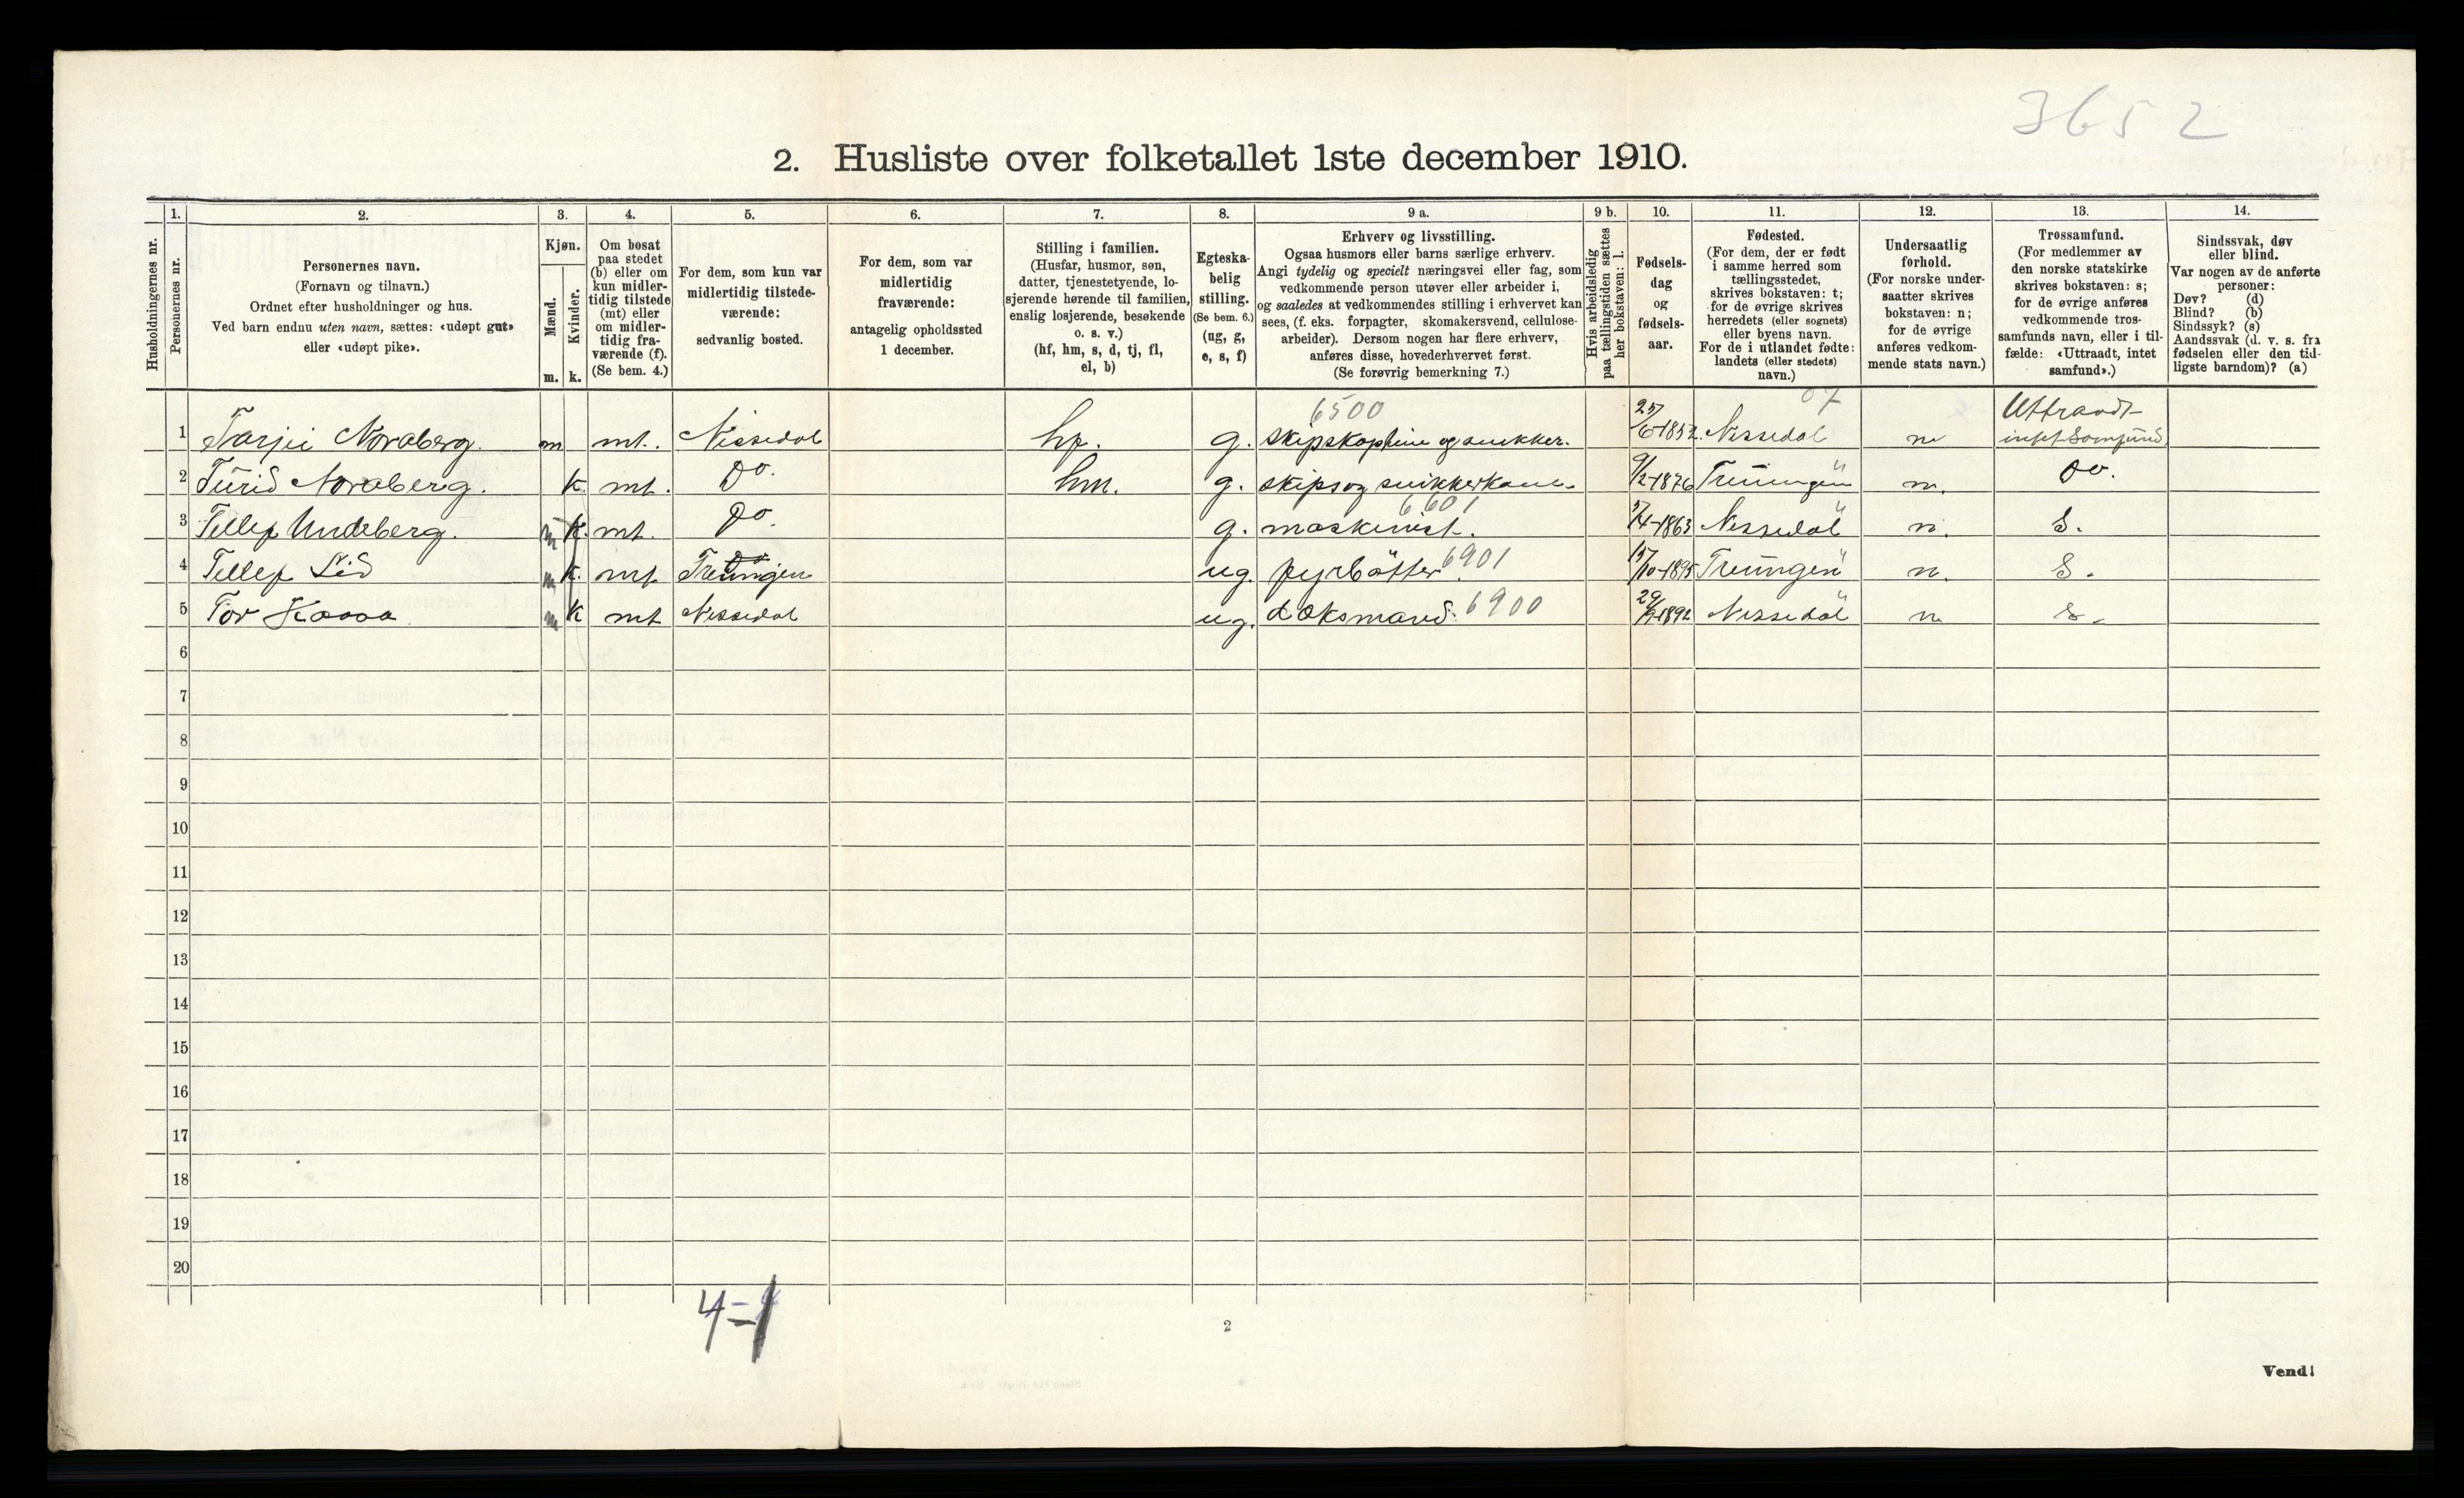 3652
2. Husliste over folketallet 1ste december 1910.
Husholdningernes nr.
1.
Personernes nr.
2.
Personernes navn.
(Fornavn og tilnavn.)
Ordnet efter husholdninger og hus.
Ved barn endnu uten navn, sættes: «udøpt gut»
eller «udøpt pike».
3.
Kjøn.
Mænd.
Kvinder.
m. k.
4.
Om bosat
paa stedet
(b) eller om
kun midler-
tidig tilstede
(mt) eller
om midler-
tidig fra-
værende (f).
(Se bem. 4.)
5.
For dem, som kun var
midlertidig tilstede-
værende:
sedvanlig bosted.
6.
For dem, som var
midlertidig
fraværende:
antagelig opholdssted
1 december.
7.
Stilling i familien.
(Husfar, husmor, søn,
datter, tjenestetyende, lo-
sjerende hørende til familien,
enslig losjerende, besøkende
o. s. v.)
(hf, hm, s, d, tj, fl,
el, b)
8.
Egteska-
belig
stilling.
(Se bem. 6.)
(ug, g,
e, s, f)
9 a.
Erhverv og livsstilling.
Ogsaa husmors eller barns særlige erhverv.
Angi tydelig og specielt næringsvei eller fag, som
vedkommende person utøver eller arbeider i,
og saaledes at vedkommendes stilling i erhvervet kan
sees, (f. eks. forpagter, skomakersvend, cellulose-
arbeider). Dersom nogen har flere erhverv,
anføres disse, hovederhvervet først.
(Se forøvrig bemerkning 7.)
9 b.
Hvis arbeidsledig
paa tællingstiden sættes
her bokstaven: l.
10.
Fødsels-
dag
og
fødsels-
aar.
11.
Fødested.
(For dem, der er født
i samme herred som
tællingsstedet,
skrives bokstaven: t;
for de øvrige skrives
herredets (eller sognets)
eller byens navn.
For de i utlandet fødte:
landets (eller stedets)
navn.)
12.
Undersaatlig
forhold.
(For norske under-
saatter skrives
bokstaven: n;
for de øvrige
anføres vedkom-
mende stats navn.)
13.
Trossamfund.
(For medlemmer av
den norske statskirke
skrives bokstaven: s;
for de øvrige anføres
vedkommende tros-
samfunds navn, eller i til-
fælde: «Uttraadt, intet
samfund».)
14.
Sindssvak, døv
eller blind.
Var nogen av de anførte
personer:
Døv? (d)
Blind? (b)
Sindssyk? (s)
Aandssvak (d. v. s. fra
fødselen eller den tid-
ligste barndom)? (a)
6500 07 Uttraadt
1 Tarjei Noraberg. m mt. Nissedal hf. g. skipskaptein og snikker. 25/6-1852. Nissedal n intet Samfund
2 Turid Noraberg. k. mt. Do. hm. g. skips og snikkerkone 9/2-1876 Treungen n. Do.
6601
3 Tellef Undeberg. m k. mt. Do. g. maskinist. 5/4-1863 Nissedal n. S.
4 Tellef Lid m k. mt. Do Treungen ug. fyrbøtter 6901 15/10-1895 Treungen n. S.
5 Tor Kaasa m k mt Nissedal ug. dæksmand. 6900 1892 Nissedal n s.
6
7
8
9
10
11
12
13
14
15
16
17
18
19
20
4-1
2
Vend!